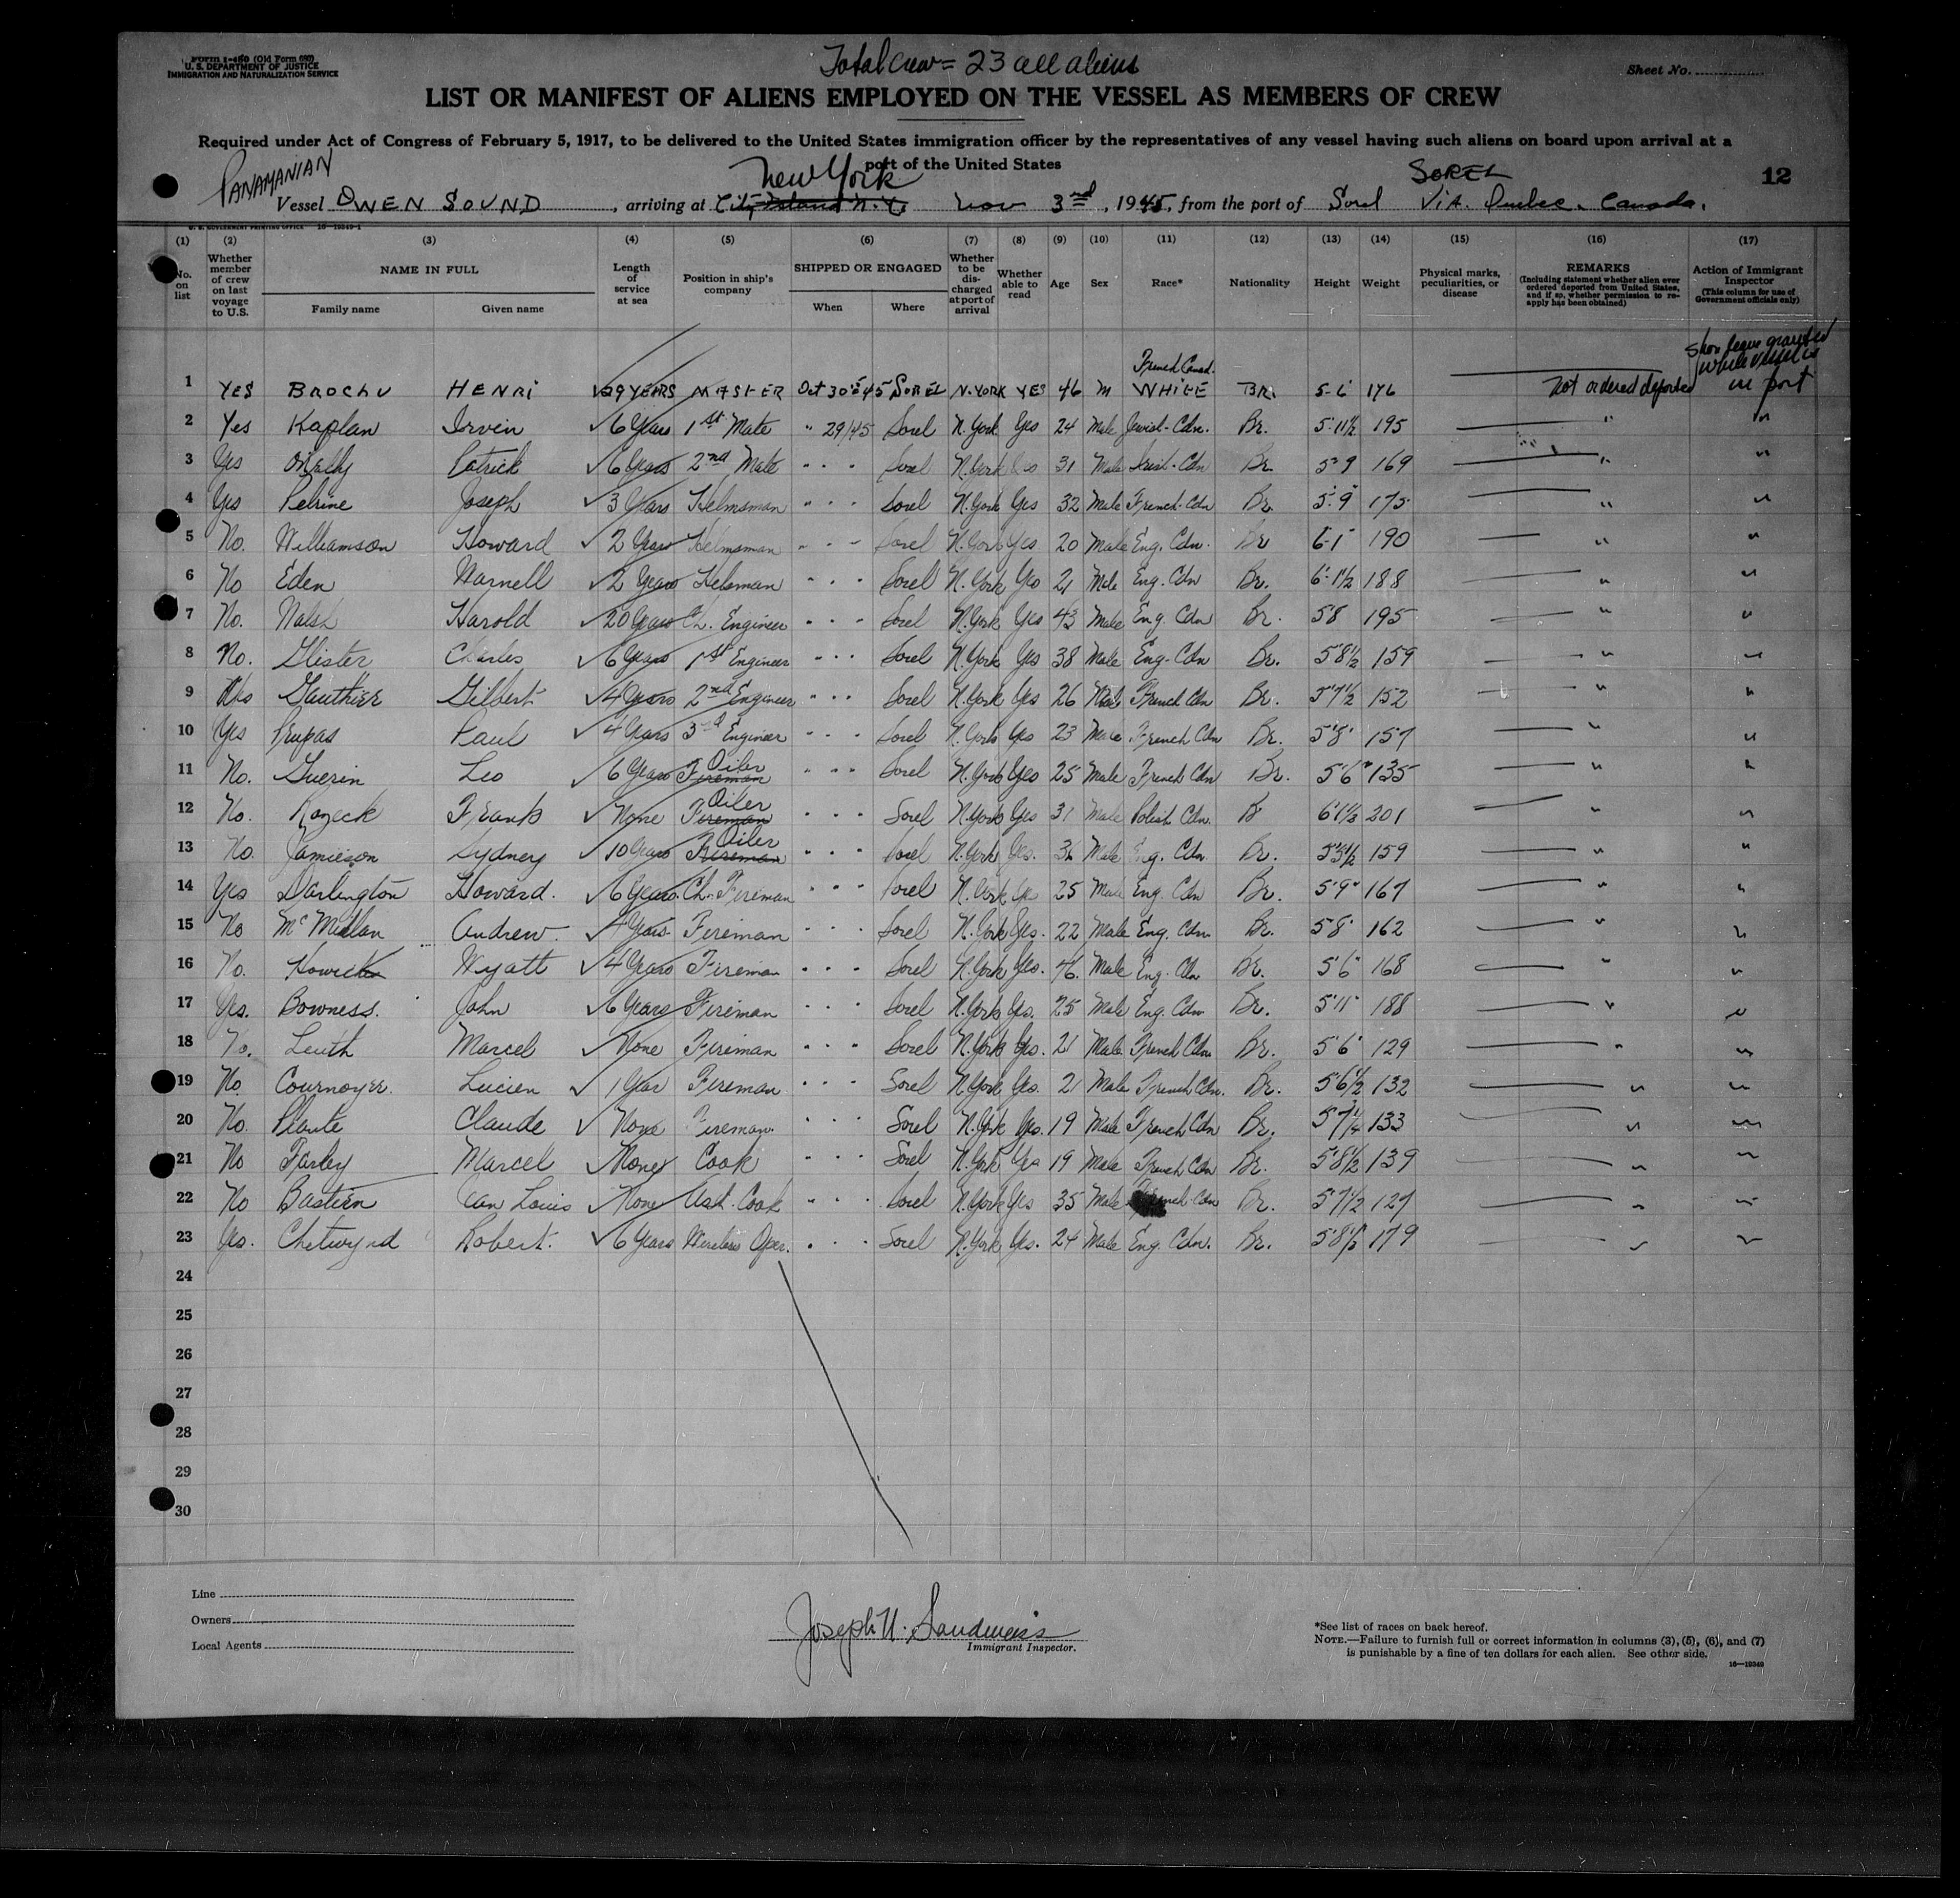 Form I-480 (Old Form 680)
U. S. DEPARTMENT OF JUSTICE
IMMIGRATION AND NATURALIZATION SERVICE
Total Crew = 23 all aliens
Sheet No.
LIST OR MANIFEST OF ALIENS EMPLOYED ON THE VESSEL AS MEMBERS OF CREW
Required under Act of Congress of February 5, 1917, to be delivered to the United States immigration officer by the representatives of any vessel having such aliens on board upon arrival at a
port of the United States
PANAMANIAN New York SOREL 12
Vessel OWEN SOUND, arriving at City Island N.Y. Nov 3rd, 1945, from the port of Sorel VIA. Quebec. Canada.
(1) (2) (3) (4) (5) (6) (7) (8) (9) (10) (11) (12) (13) (14) (15) (16) (17)
No. on list
Whether member of crew on last voyage to U.S.
NAME IN FULL
Family name Given name
Length of service at sea
Position in ship's company
SHIPPED OR ENGAGED
When Where
Whether to be discharged at port of arrival
Whether able to read
Age Sex Race* Nationality Height Weight
Physical marks, peculiarities, or disease
REMARKS
(Including statement whether alien ever ordered deported from United States, and if so, whether permission to reapply has been obtained)
Action of Immigrant Inspector
(This column for use of Government officials only)
Shore leave granted while vessel is in port
French Canad.
1 YES BROCHU HENRI 29 YEARS MASTER Oct 30th 45 SOREL N.YORK YES 46 M WHITE BR. 5-6 176 not ordered deported
2 Yes Kaplan Irvin 6 Years 1st Mate " 29/45 Sorel N.York Yes 24 Male Jewish-Cdn. Br. 5-11½ 195 "
3 Yes Patrick 6 Years 2nd Mate " " " Sorel N.York Yes 31 Male Irish-Cdn Br. 5-9 169 "
4 Yes Pelrine Joseph 3 Years Helmsman " " " Sorel N.York Yes 32 Male French-Cdn Br. 5-9 175 "
5 No. Williamson Howard 2 Years Helmsman " " " Sorel N.York Yes 20 Male Eng. Cdn. Br 6-1 190 "
6 No Eden Warnell 2 Years Helsman " " " Sorel N.York Yes 21 Male Eng. Cdn Br. 6-1½ 188 "
7 No. Harold 20 Years Ch. Engineer " " " Sorel N.York Yes 43 Male Eng. Cdn Br. 5 8 195 "
8 No. Glister Charles 6 Years 1st Engineer " " " Sorel N.York Yes 38 Male Eng-Cdn Br. 5 8½ 159 "
9 Yes Gauthier Gilbert 4 Years 2nd Engineer " " " Sorel N.York Yes 26 Male French Cdn Br. 5'7½ 152 "
10 Yes Paul 4 Years 3rd Engineer " " " Sorel N.York Yes 23 Male French Cdn Br. 5'8" 157 "
11 No. Guerin Leo 6 Years Fireman Oiler " " " Sorel N.York Yes 25 Male French Cdn Br. 5'6" 135 "
12 No. Kozeck Frank None Fireman Oiler " " " Sorel N.York Yes 31 Male Polish Cdn. B 6'1½ 201 "
13 No. Jamieson Sydney 10 Years Fireman Oiler " " " Sorel N.York Yes. Male Eng. Cdn. Br. 159 "
14 Yes Darlington Howard. 6 Years Ch. Fireman " " " Sorel N.York Ye 25 Male Eng. Cdn Br. 5'9" 167 "
15 No McMillan Andrew. 4 Years Fireman " " " Sorel N.York Yes. 22 Male Eng. Cdn. Br. 5'8" 162
16 No. Wyatt 4 Years Fireman " " " Sorel N.York Yes. 46. Male Eng. Cdn Br. 5'6" 168 "
17 Yes. Bowness. John 6 Years Fireman " " " Sorel N.York Yes. 25 Male Eng. Cdn Br. 5'11" 188 "
18 No. Marcel None Fireman " " " Sorel N.York Yes. 21 Male French Cdn. Br. 5'6" 129 "
19 No. Cournoyer. Lucien 1 Year Fireman " " " Sorel N.York Yes. 21 Male French Cdn. Br. 5'6½ 132 "
20 No. Plante Claude None Fireman " " " Sorel N.York Yes. 19 Male French Cdn Br. 5 7¼ 133 "
21 No Farley Marcel None Cook " " " Sorel N.York Yes 19 Male French Cdn Br. 5'8½ 139 "
22 No Bastien Jean Louis None Asst. Cook " " " Sorel N.York Yes 35 Male French-Cdn Br. 5'7½ 127 "
23 Yes. Chetwynd Robert. 6 Years Wireless Oper. " " " Sorel N.York Yes. 24 Male Eng. Cdn. Br. 5'8½ 179 "
24
25
26
27
28
29
30
Line
Owners
Local Agents
Joseph N. Sandweiss
Immigrant Inspector.
*See list of races on back hereof.
NOTE.—Failure to furnish full or correct information in columns (3), (5), (6), and (7)
is punishable by a fine of ten dollars for each alien. See other side.
16—19349